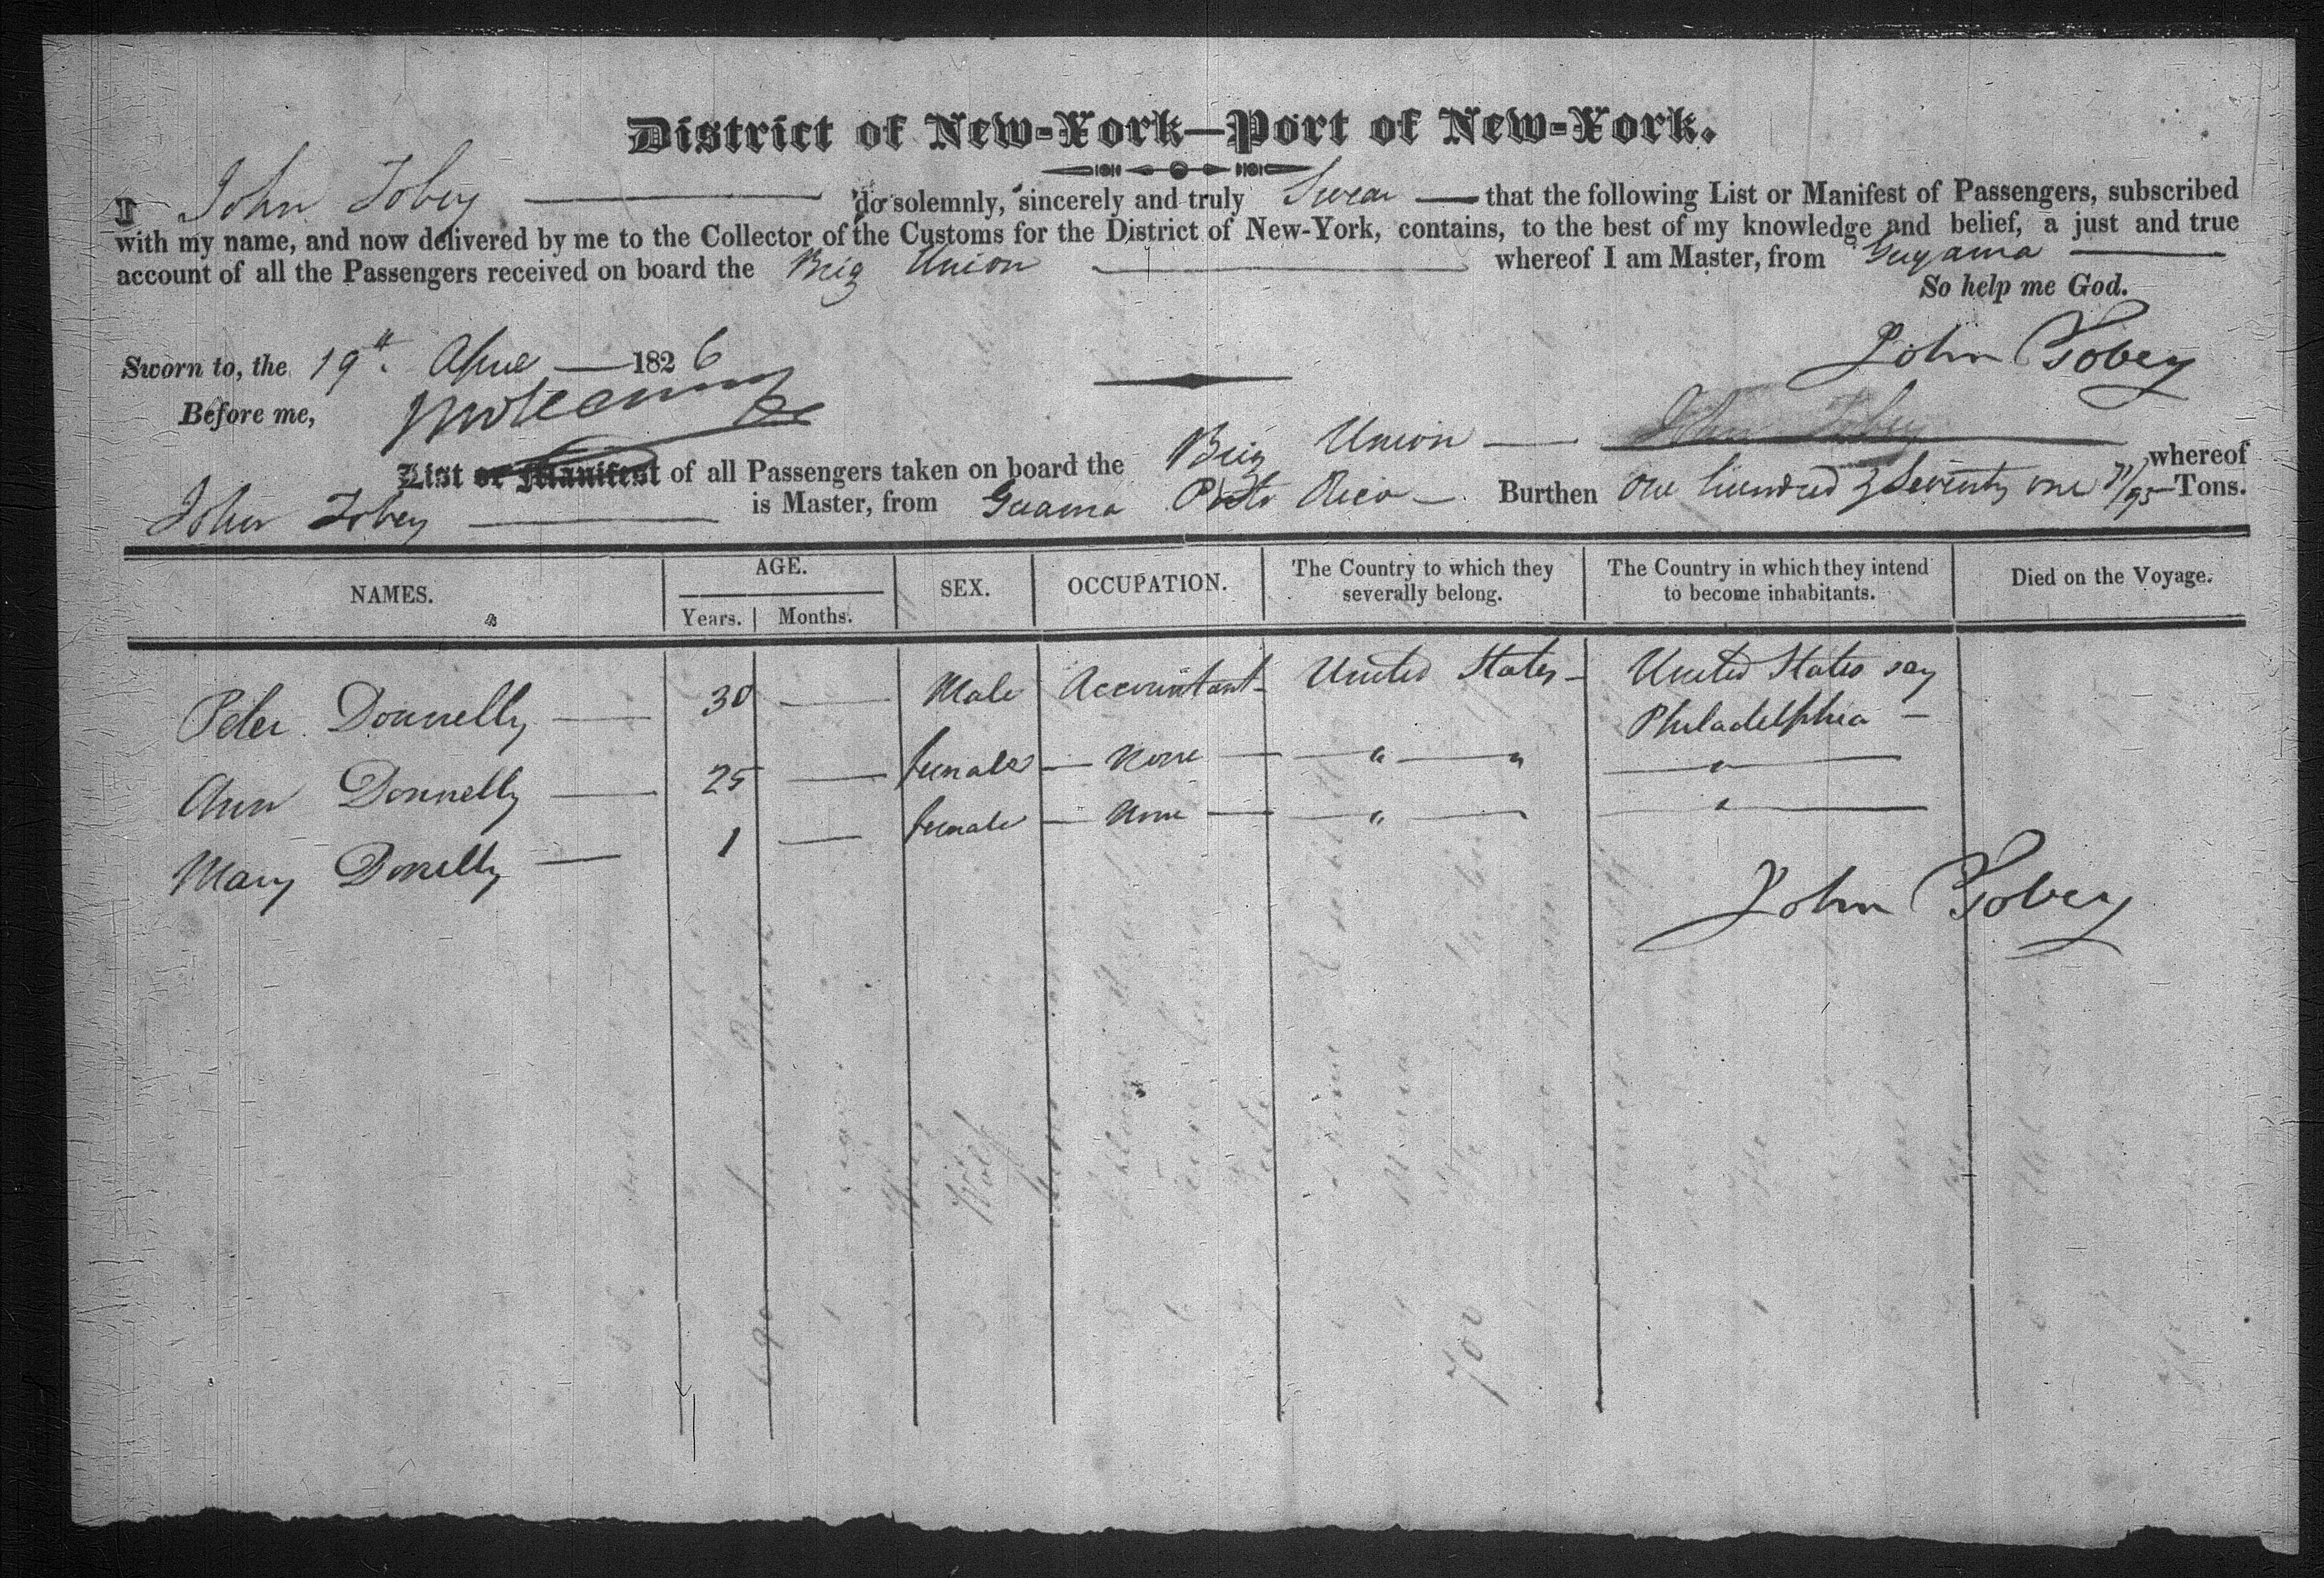 District of New-York—Port of New-York.
I John Tobey do solemnly, sincerely and truly Swear that the following List or Manifest of Passengers, subscribed
with my name, and now delivered by me to the Collector of the Customs for the District of New-York, contains, to the best of my knowledge and belief, a just and true
account of all the Passengers received on board the Brig Union whereof I am Master, from Guyama
So help me God.
Sworn to, the 19th April 1826
John Tobey
Before me,
List or Manifest of all Passengers taken on board the Brig Union John Tobey whereof
John Tobey is Master, from Guama Porto Rico Burthen One hundred & Seventy one 71/95 Tons.
NAMES. AGE. SEX. OCCUPATION. The Country to which they severally belong. The Country in which they intend to become inhabitants. Died on the Voyage.
Years. Months.
Peter Donnelly 30 Male Accountant United States United States say
Philadelphia
Ann Donnelly 25 female None " " "
Mary Donelly 1 female None " "
John Tobey
700